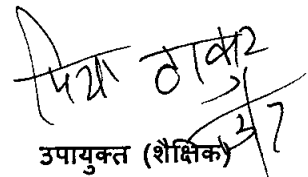 प्रिया ठाकुर
उपायुक्त (शैक्षिक)